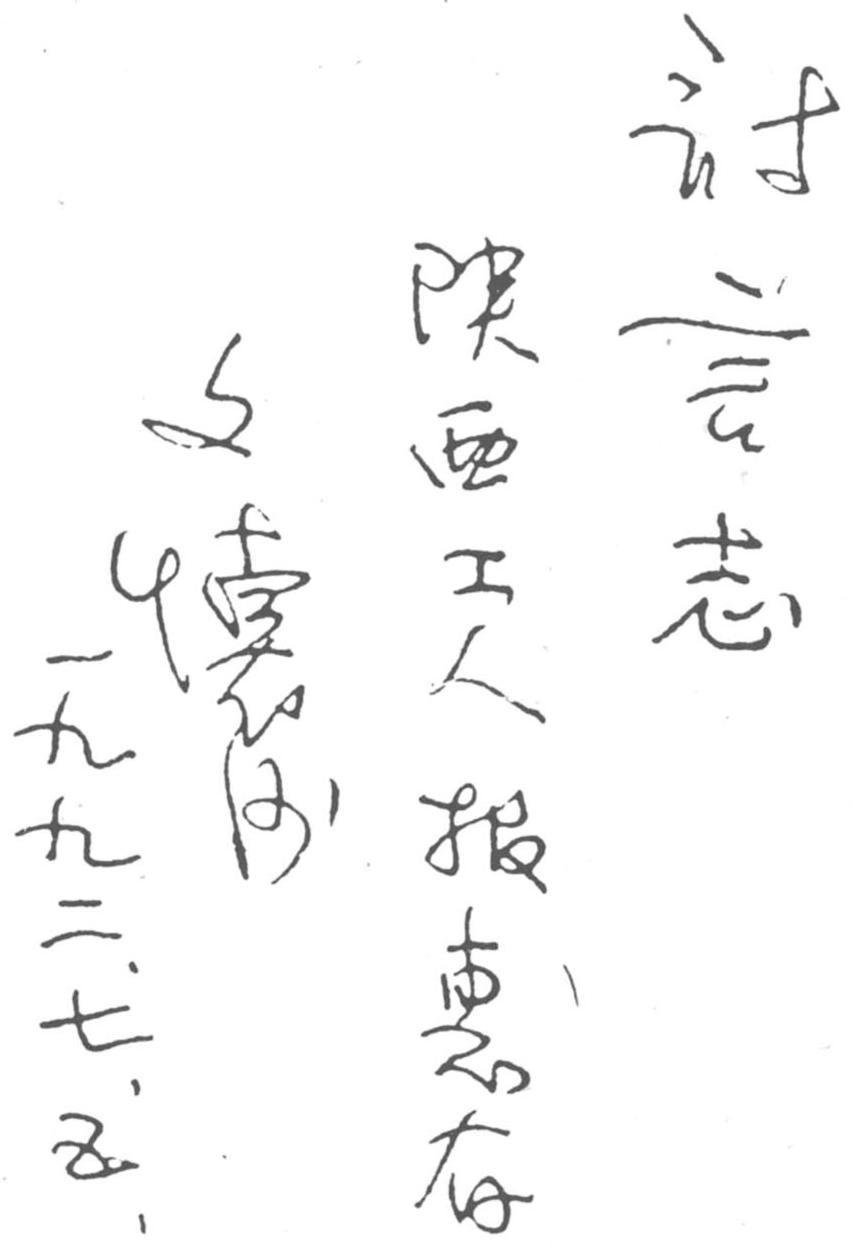 诗言志
陕西工人报惠存
文怀沙
一九九二、七、五、